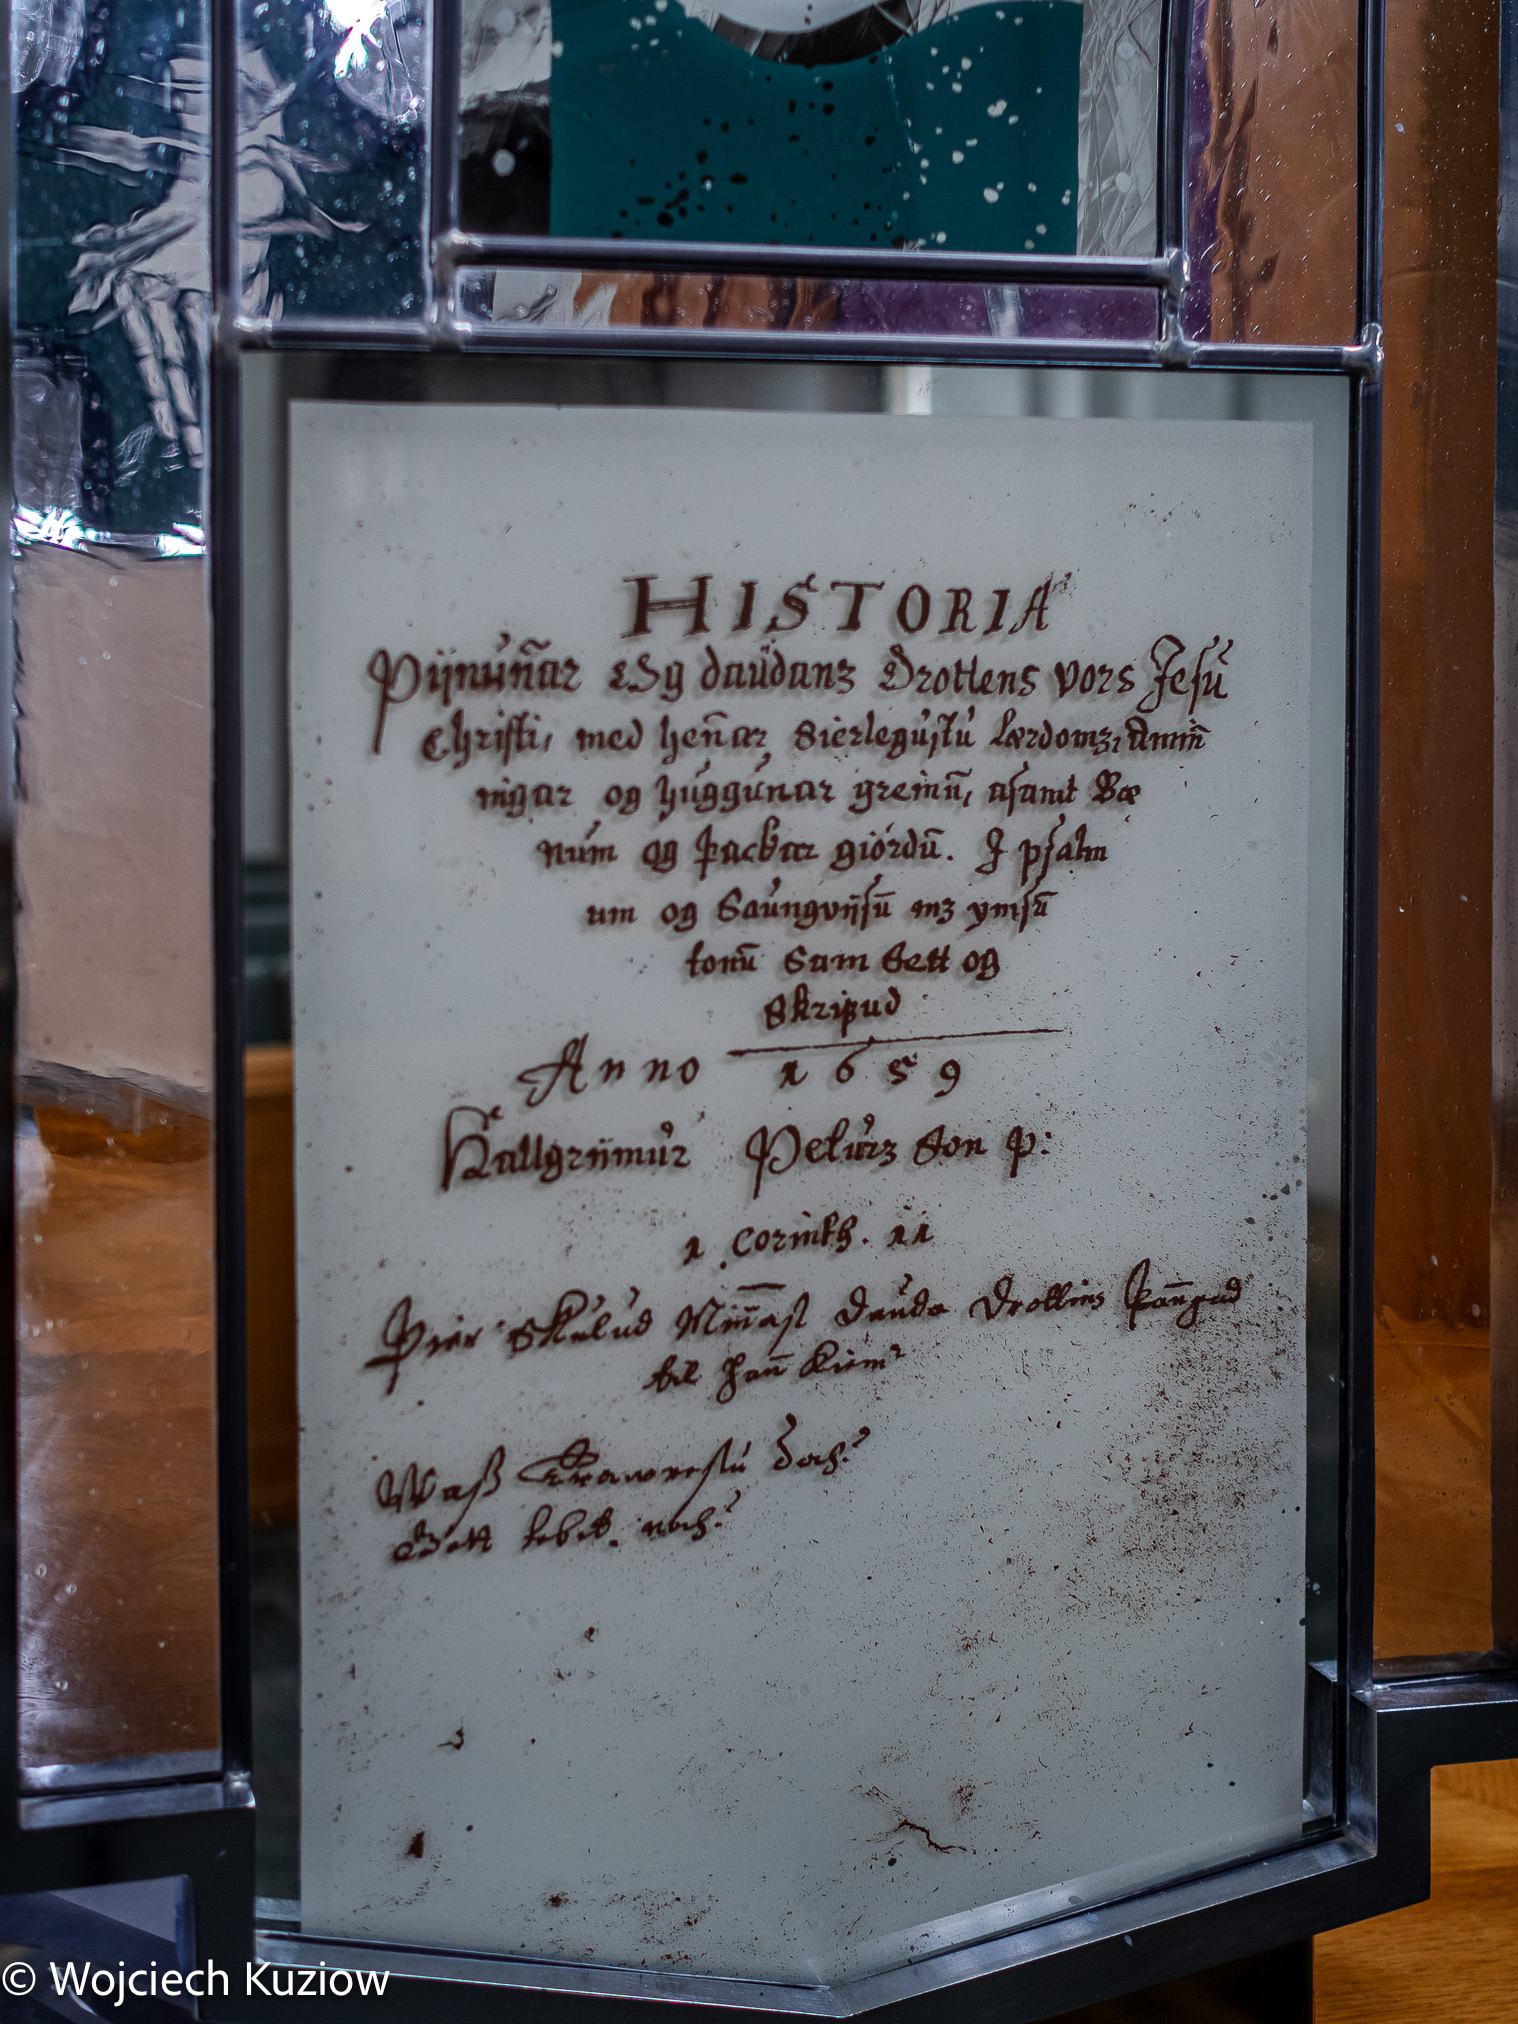 HISTORIA
Pijnun̄ar Og daudans Drottens vors Jesu
Christi, med hen̄ar Sierlegustu lærdoms, Amin̄
ningar og huggunar greinū, asamt Bæ
num og þackar giórdū. I psalm
um og Saungvijsū mz ymsū
tonū Sam Sett og
Skrifud
Anno 1659
Hallgrijmur Peturs Son p:
1 Corinth. 11
Þier Skulud Min̄ast Dauda Drottins þan̄gad
til han̄ kiemr
Waß Trawrestu doch?
Gott lebet noch?
© Wojciech Kuziow